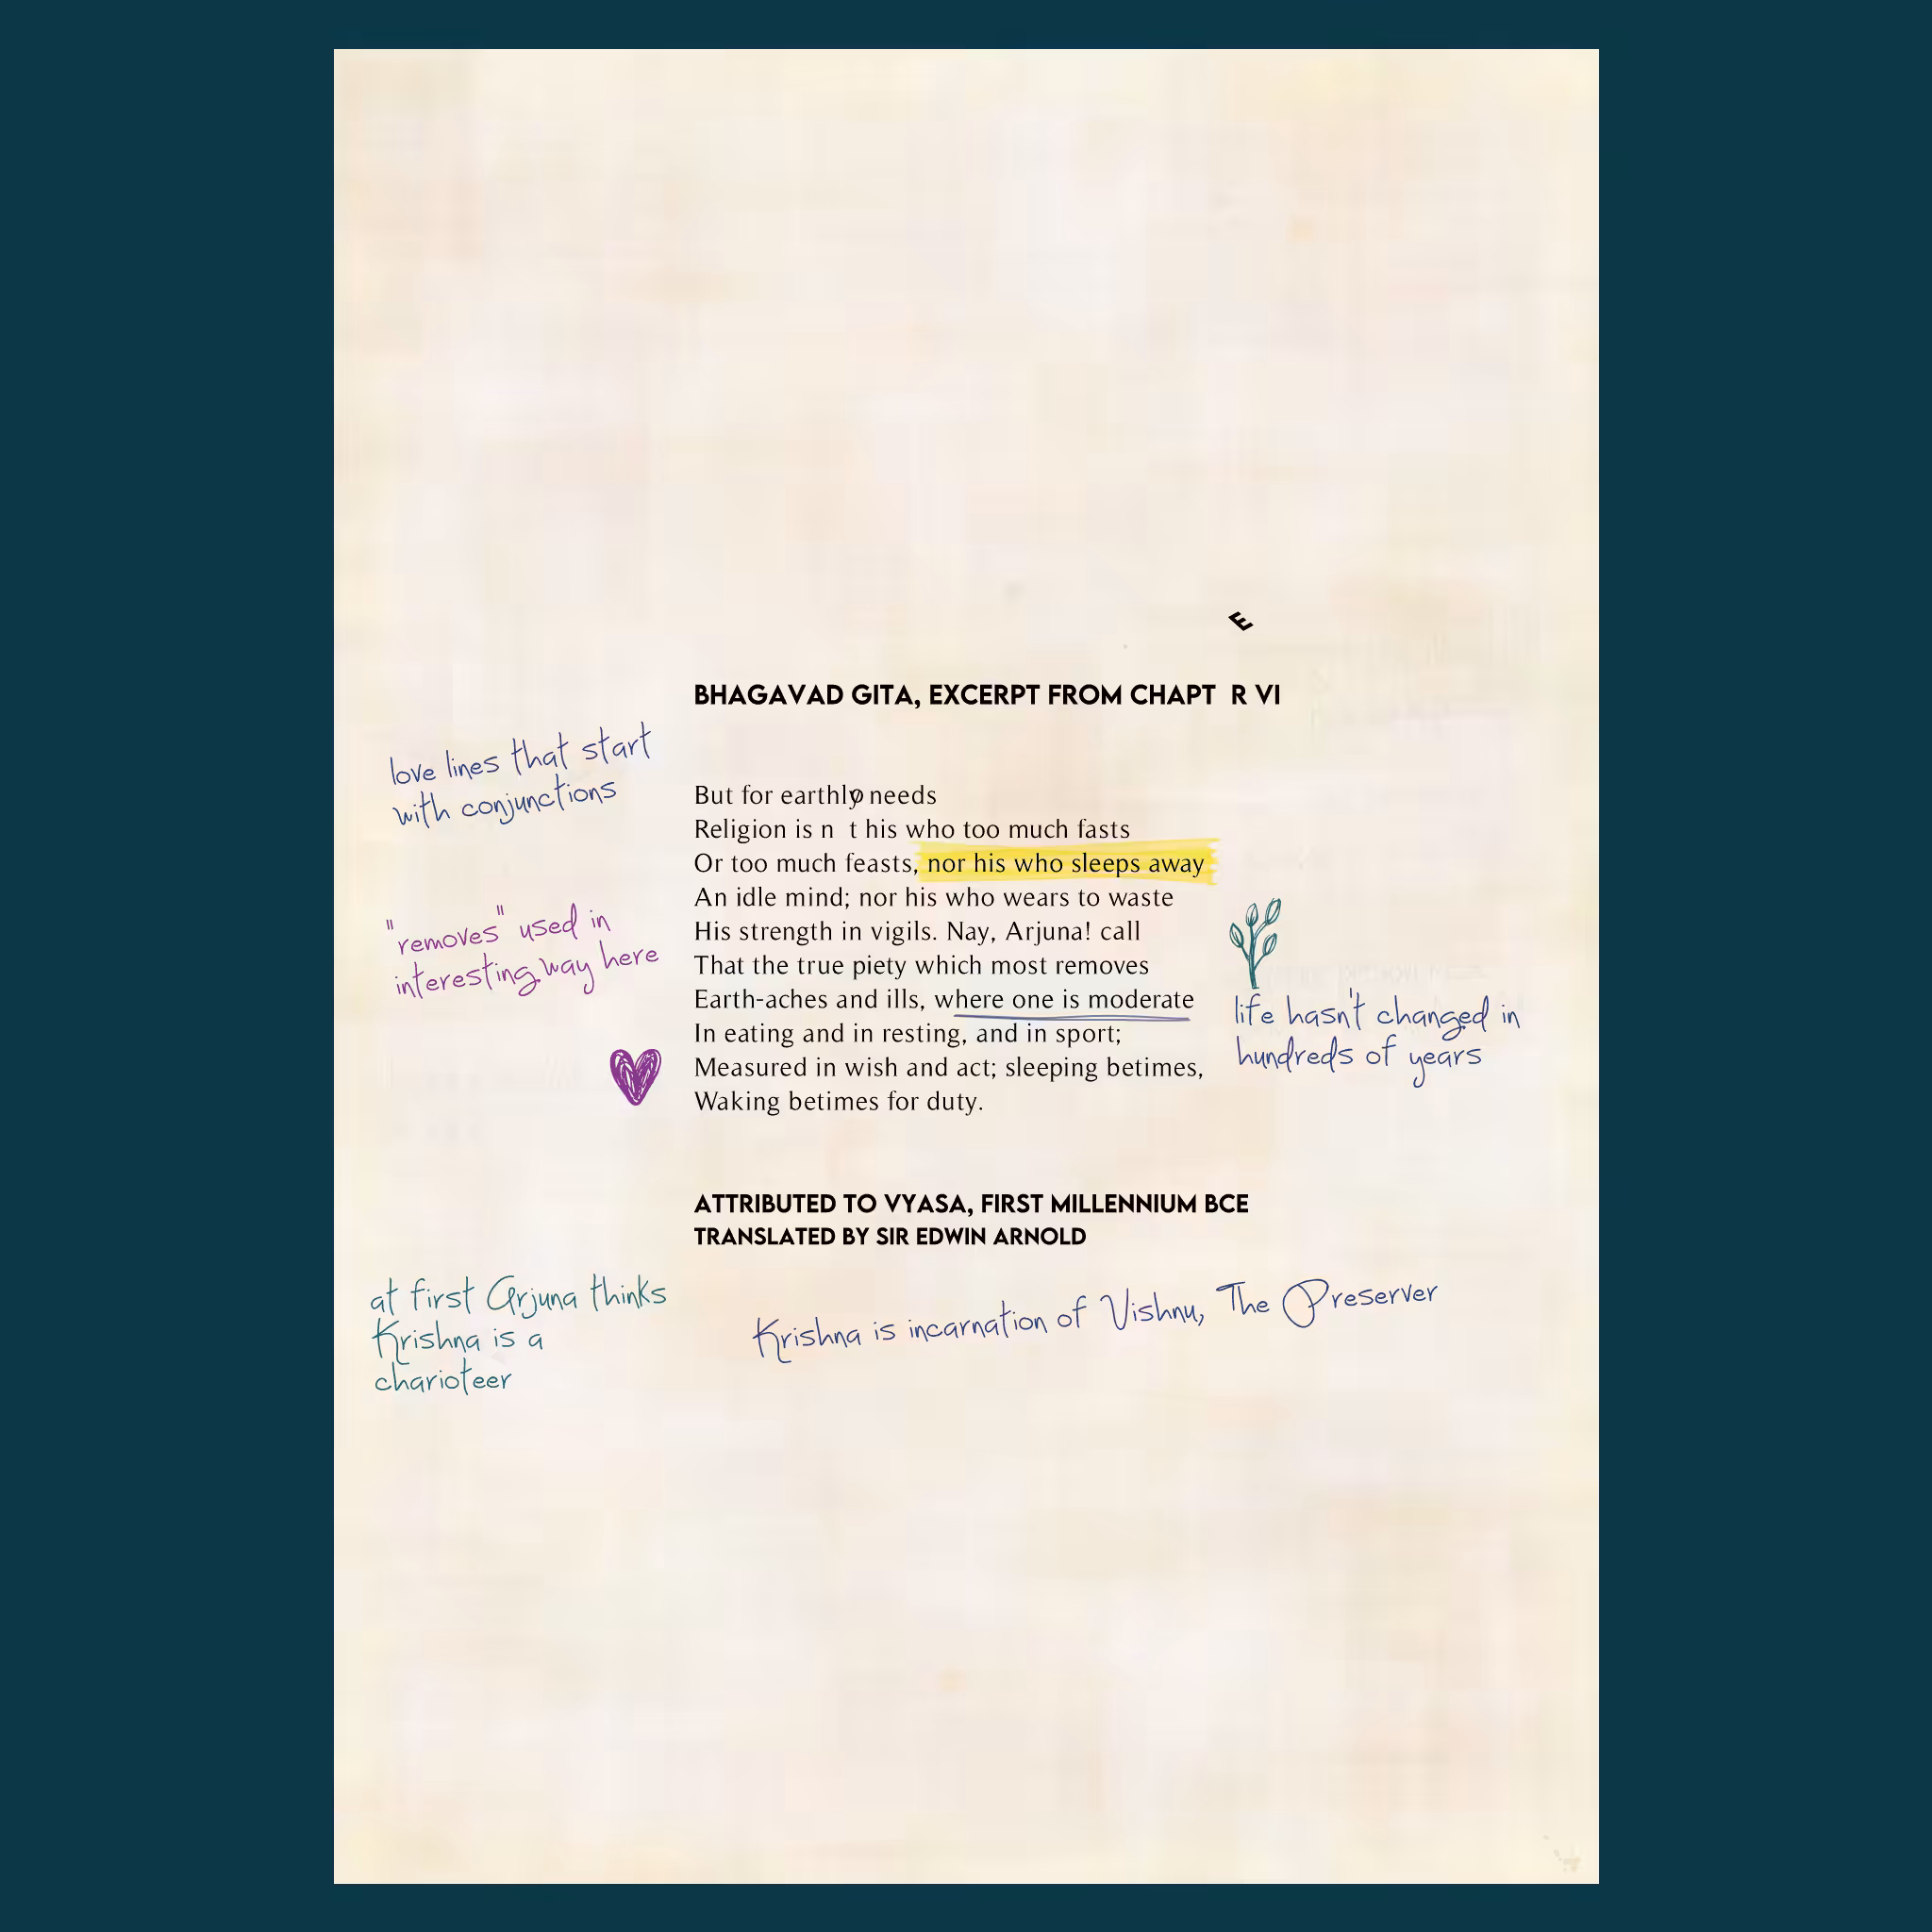 E
BHAGAVAD GITA, EXCERPT FROM CHAPT R VI
love lines that start
with conjunctions
But for earthlyo needs
Religion is n t his who too much fasts
Or too much feasts, nor his who sleeps away
An idle mind; nor his who wears to waste
His strength in vigils. Nay, Arjuna! call
That the true piety which most removes
Earth-aches and ills, where one is moderate
In eating and in resting, and in sport;
Measured in wish and act; sleeping betimes,
Waking betimes for duty.
"removes" used in
interesting way here
life hasn't changed in
hundreds of years
ATTRIBUTED TO VYASA, FIRST MILLENNIUM BCE
TRANSLATED BY SIR EDWIN ARNOLD
at first Arjuna thinks
Krishna is a
charioteer
Krishna is incarnation of Vishnu, The Preserver